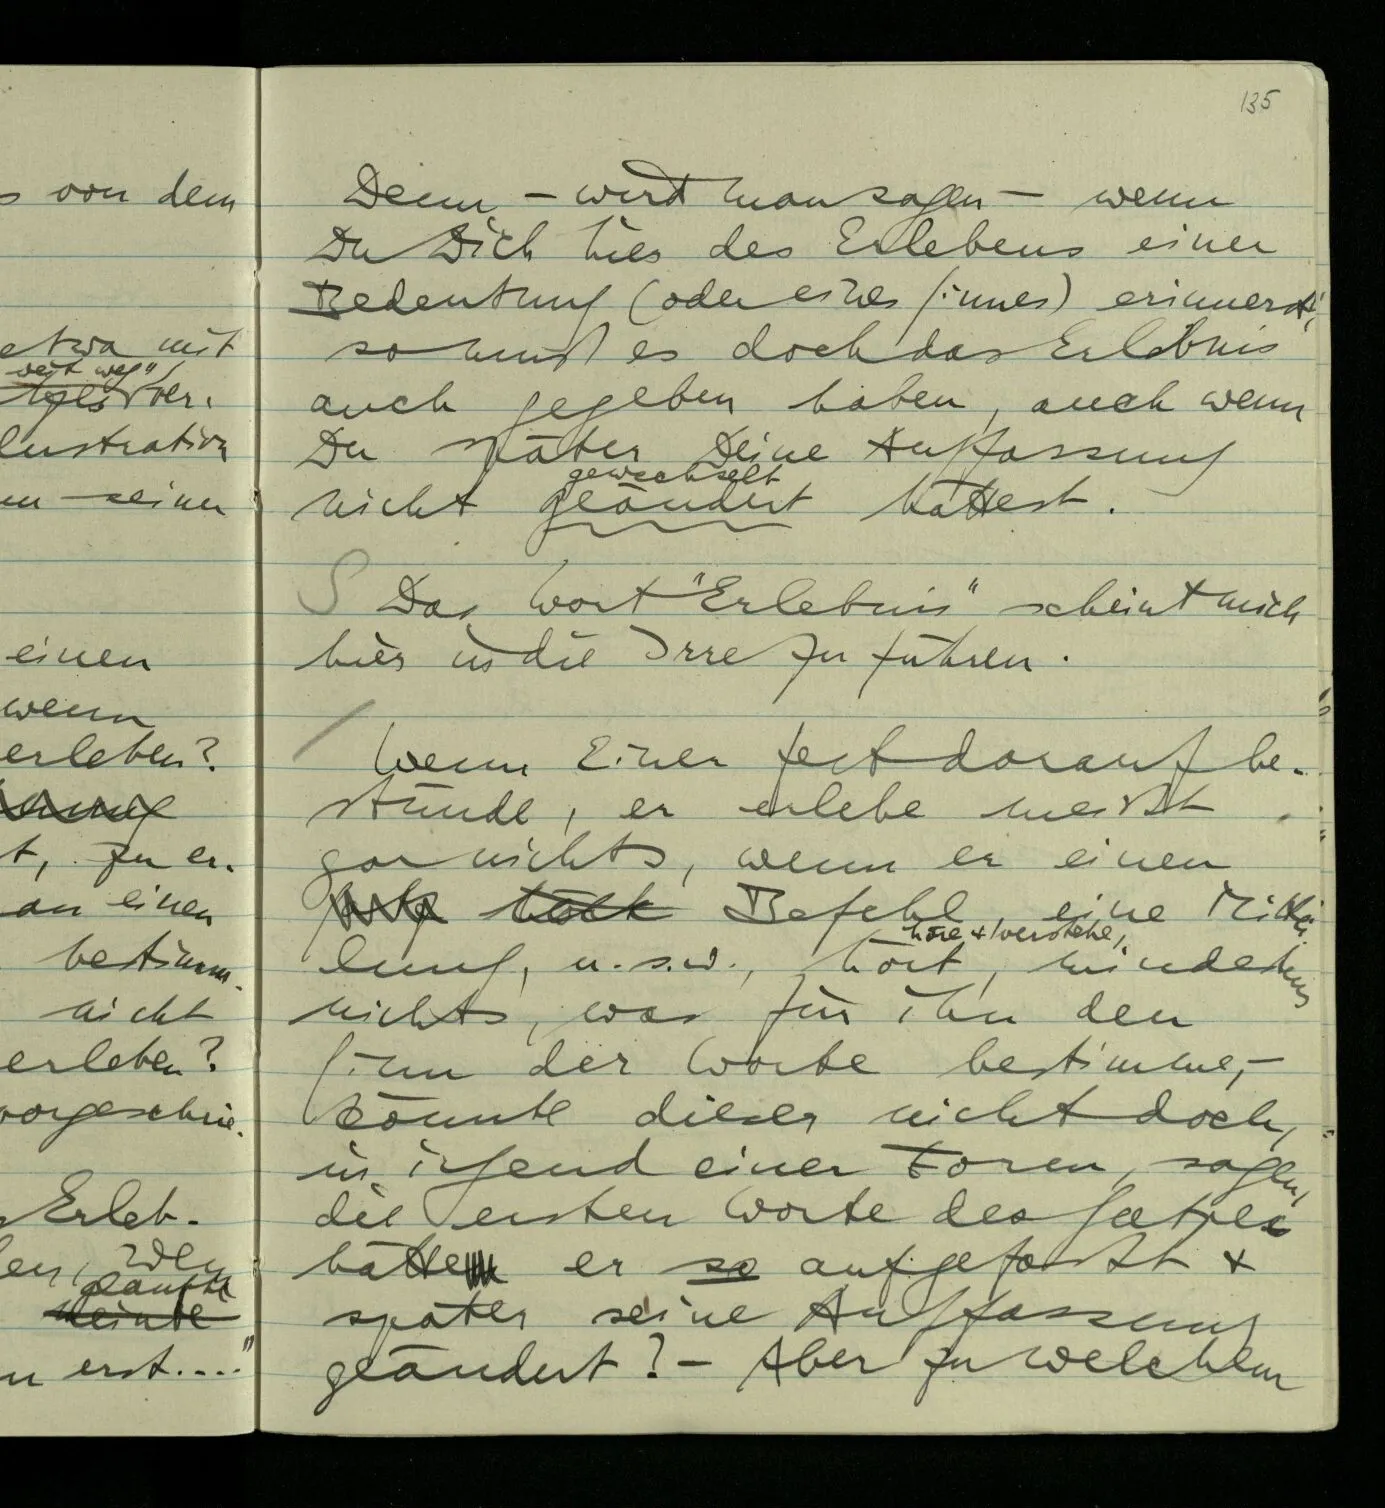 s von dem
etwa mit
weit weg"
ver-
lustration
seinen
einen
wenn
erleben?
t, zu er-
an einen
bestimm-
nicht
erleben?
vorgeschrie-
Erleb-
en, wen
glaubte
meinte
n erst...."
135
Denn – wird man sagen – wenn
Du Dich hier des Erlebens einer
Bedeutung (oder eines Sinnes) erinnerst,
so muß es doch das Erlebnis
auch gegeben haben, auch wenn
Du später Deine Auffassung
gewechselt
nicht geändert hättest.
S Das Wort "Erlebnis" scheint mich
hier in die Irre zu führen.
/ Wenn Einer fest darauf be-
stünde, er erlebe meist
gar nichts, wenn er einen
Befehl, eine Mittei-
höre & verstehe,
lung, u.s.w., hört, mindestens
nichts, was für ihn den
Sinn der Worte bestimme, –
könnte dieser nicht doch,
in irgend einer Form, sagen,
die ersten Worte des Satzes
hätte er so aufgefaßt &
später seine Auffassung
geändert? – Aber zu welchem